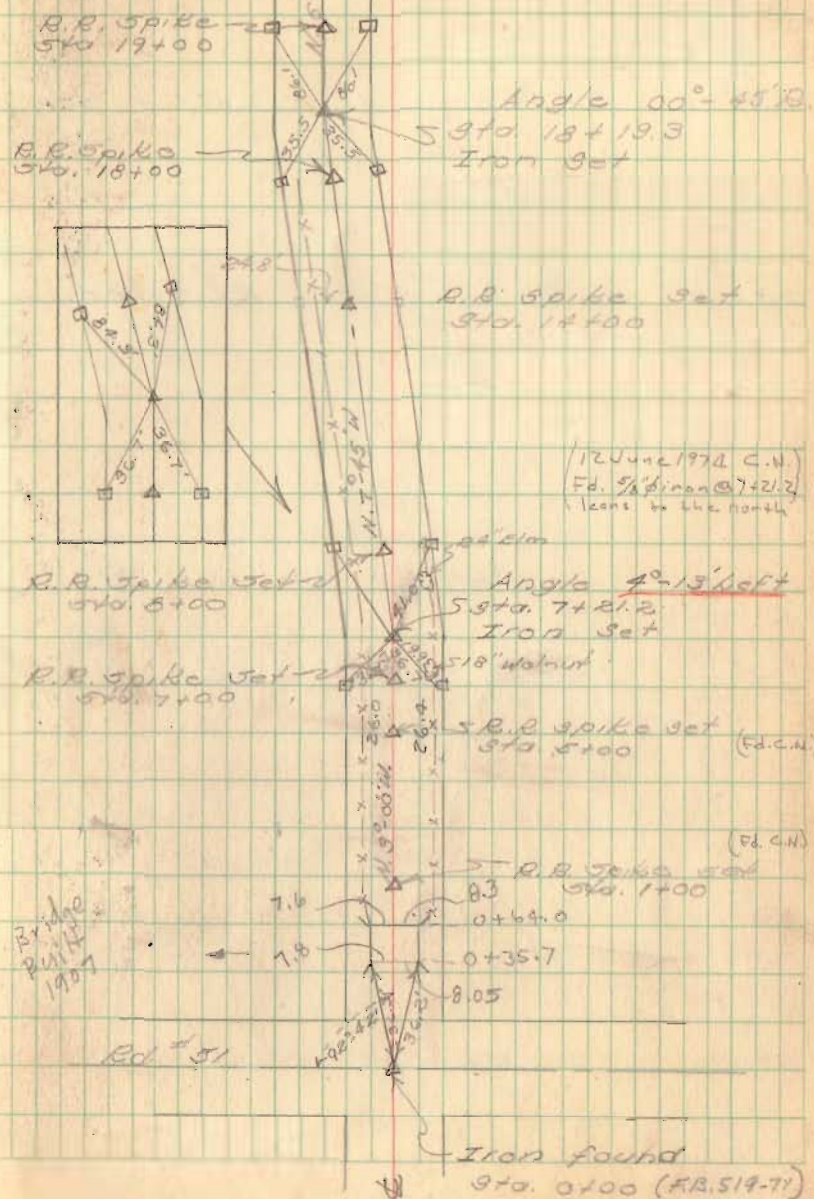 R.R. Spike
Sta 19+00
N.
84.8'
Angle 00°-45'R.
Sta. 18+19.3
Iron Set
35.5
35.5
R.R. Spike
Sta. 18+00
24.8'
R.R. Spike Set
Sta. 14+00
84.3'
84.3'
36.7'
36.7'
N. 7°-45' W
(12 June 1974 C.N.)
Fd. 5/8" ϕ iron @ 7+21.2
leans to the north
24" Elm
R.R. Spike Set
Sta. 8+00
Angle 4°-13' Left
Sta. 7+21.2
Iron Set
18" Walnut
R.R. Spike Set
Sta. 7+00
26.0
26.4
R.R. Spike Set
Sta. 5+00
(Fd. C.N.)
N. 3°-00' W.
(Fd. C.N.)
R.R. Spike Set
Sta. 1+00
7.6
8.3
0+64.0
Bridge
Built
1907
7.8
0+35.7
8.05
36.2'
92°-42'
Rd #51
Iron found
Sta. 0+00 (F.B. 519-71)